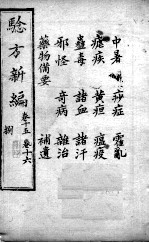 中暑 痧症 霍亂
瘧疾 黃疸 瘟疫
蠱毒 諸血 諸汗
邪怪 奇病 雜治
藥物備要 補遺
騐方新編 卷十五卷十六
捌